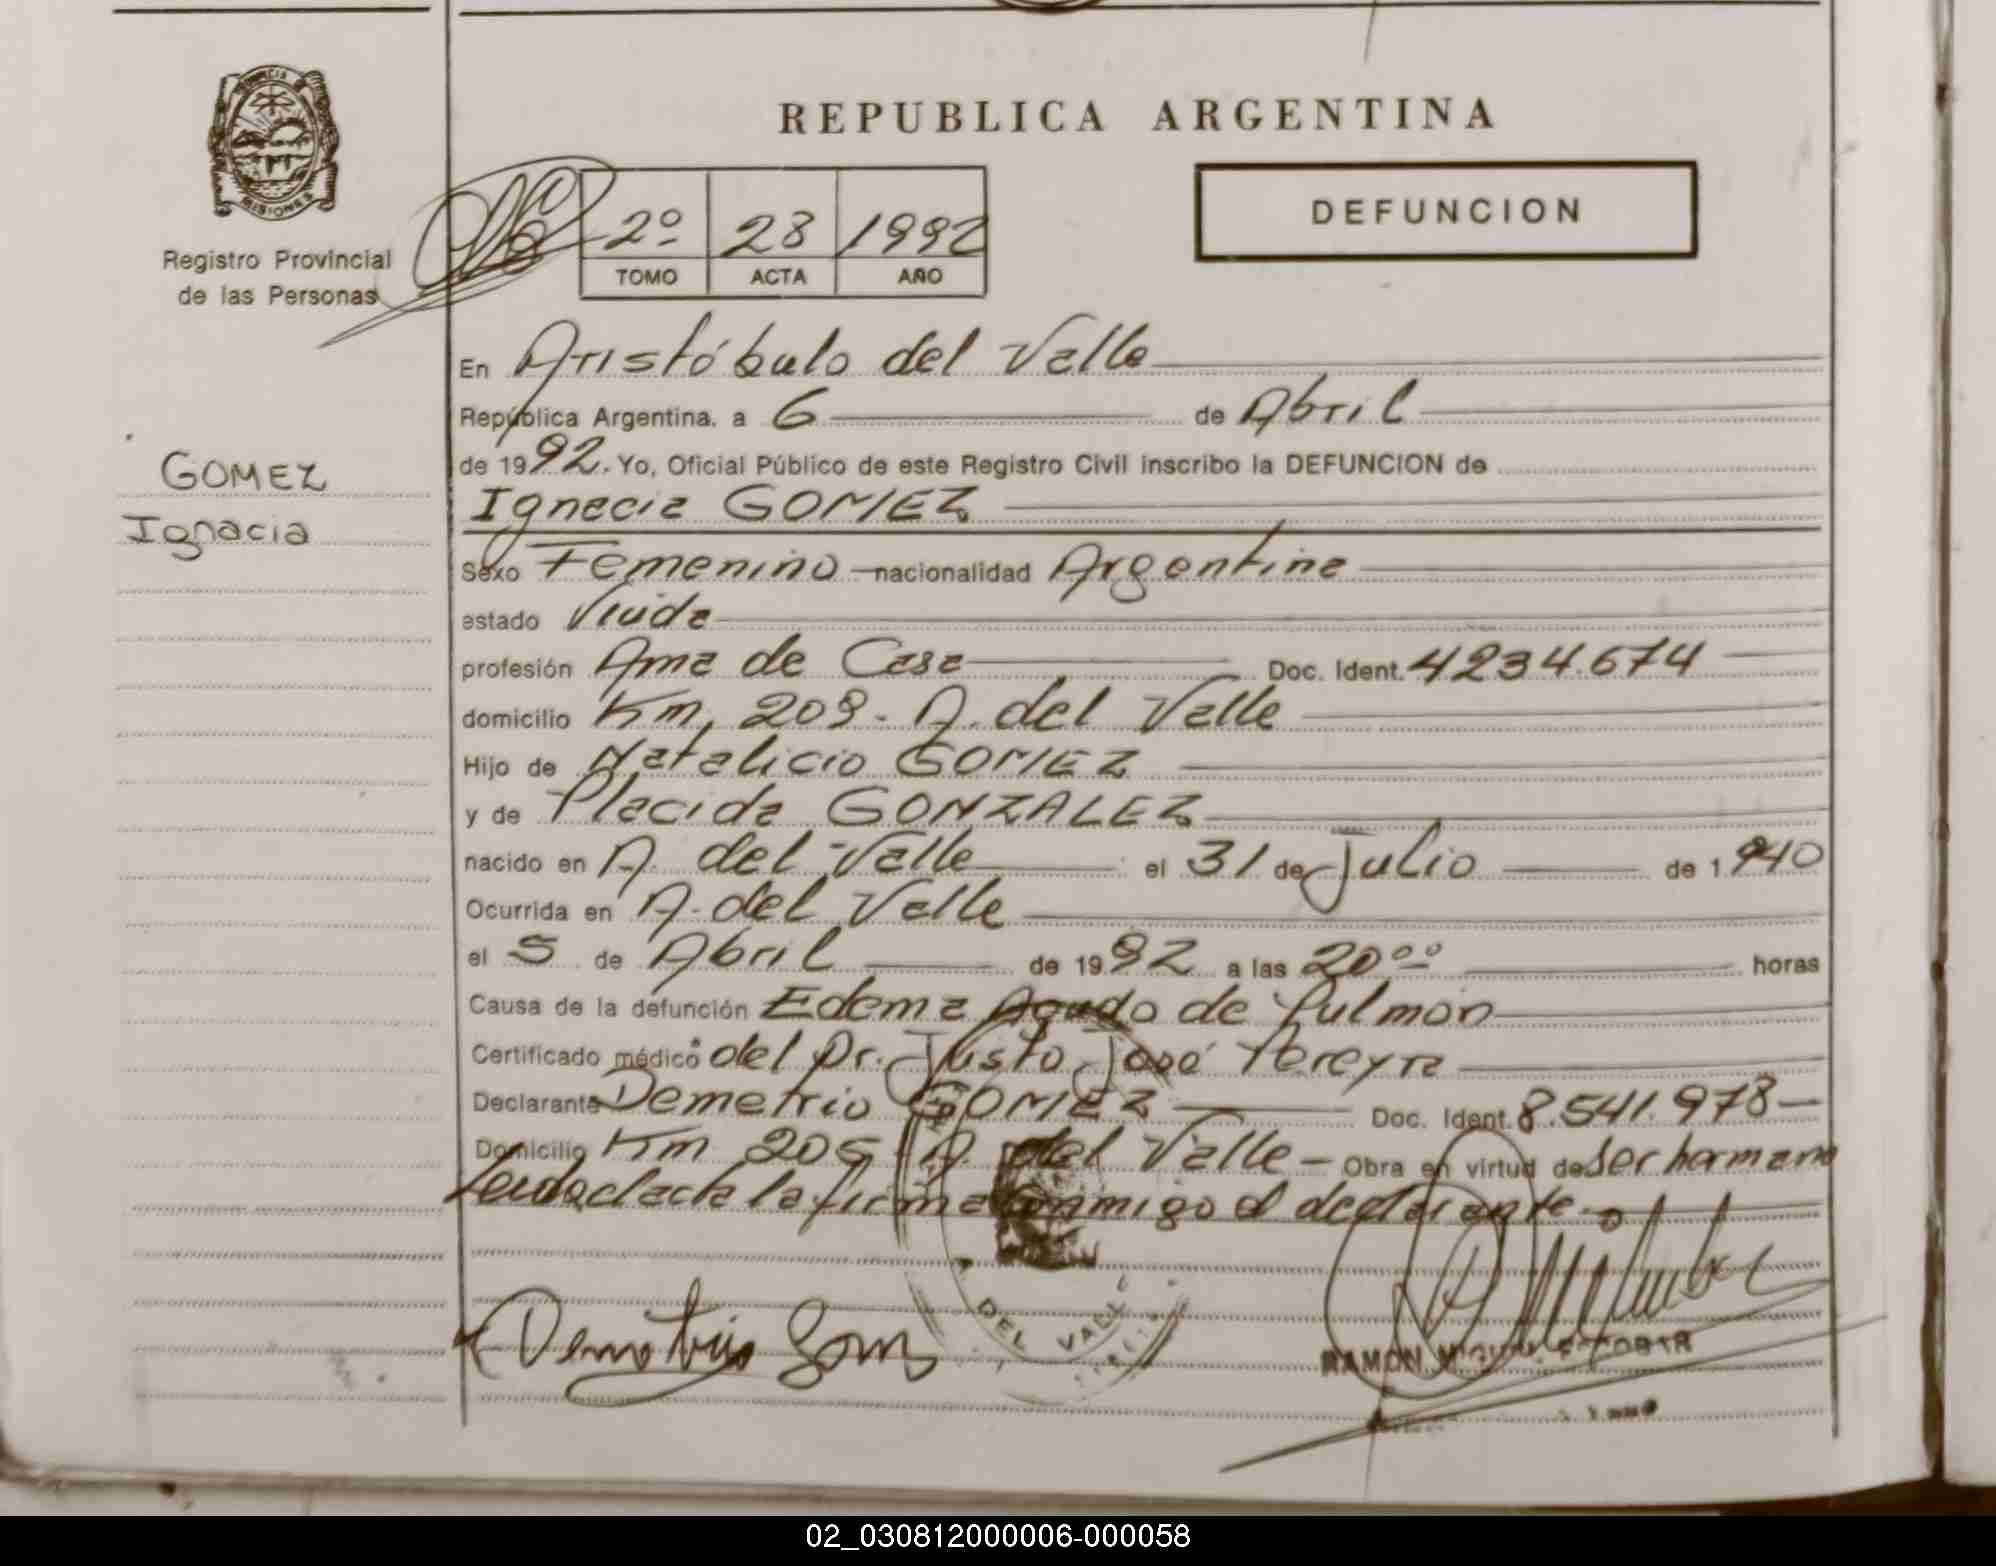 REPUBLICA ARGENTINA
PROVINCIA
MISIONES
Registro Provincial
de las Personas
2º 28 1992
TOMO ACTA AÑO
DEFUNCION
GOMEZ
Ignacia
En Aristóbulo del Valle
República Argentina, a 6 de Abril
de 1992. Yo, Oficial Público de este Registro Civil inscribo la DEFUNCION de
Ignacia GOMEZ
Sexo Femenino nacionalidad Argentina
estado Viuda
profesión Ama de Casa Doc. Ident. 4234.674
domicilio Km. 209 - A. del Valle
Hijo de Natalicio GOMEZ
y de Placida GONZALEZ
nacido en A. del Valle el 31 de Julio de 1940
Ocurrida en A. del Valle
el 5 de Abril de 1992 a las 20ºº horas
Causa de la defunción Edema Agudo de Pulmón
Certificado médico del Dr. Justo José Pereyra
Declarante Demetrio GOMEZ Doc. Ident. 8.541.978
Domicilio Km 205 A. del Valle - Obra en virtud de ser hermano
Leida el acta la firma conmigo el declarante
DEL VALLE
Demetrio Gomez
RAMON MIGUEL ESCOBAR
02_030812000006-000058